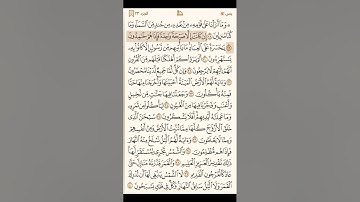 الجزء ٢٣
وَمَآ أَنزَلۡنَا عَلَىٰ قَوۡمِهِۦ مِنۢ بَعۡدِهِۦ مِن جُندٖ مِّنَ ٱلسَّمَآءِ وَمَا
كُنَّا مُنزِلِينَ ٢٨ إِن كَانَتۡ إِلَّا صَيۡحَةٗ وَٰحِدَةٗ فَإِذَا هُمۡ خَٰمِدُونَ
٢٩ يَٰحَسۡرَةً عَلَى ٱلۡعِبَادِۚ مَا يَأۡتِيهِم مِّن رَّسُولٍ إِلَّا كَانُواْ بِهِۦ
يَسۡتَهۡزِءُونَ ٣٠ أَلَمۡ يَرَوۡاْ كَمۡ أَهۡلَكۡنَا قَبۡلَهُم مِّنَ ٱلۡقُرُونِ
أَنَّهُمۡ إِلَيۡهِمۡ لَا يَرۡجِعُونَ ٣١ وَإِن كُلّٞ لَّمَّا جَمِيعٞ لَّدَيۡنَا مُحۡضَرُونَ
٣٢ وَءَايَةٞ لَّهُمُ ٱلۡأَرۡضُ ٱلۡمَيۡتَةُ أَحۡيَيۡنَٰهَا وَأَخۡرَجۡنَا مِنۡهَا حَبّٗا
فَمِنۡهُ يَأۡكُلُونَ ٣٣ وَجَعَلۡنَا فِيهَا جَنَّٰتٖ مِّن نَّخِيلٖ
وَأَعۡنَٰبٖ وَفَجَّرۡنَا فِيهَا مِنَ ٱلۡعُيُونِ ٣٤ لِيَأۡكُلُواْ مِن ثَمَرِهِۦ
وَمَا عَمِلَتۡهُ أَيۡدِيهِمۡۚ أَفَلَا يَشۡكُرُونَ ٣٥ سُبۡحَٰنَ ٱلَّذِي
خَلَقَ ٱلۡأَزۡوَٰجَ كُلَّهَا مِمَّا تُنۢبِتُ ٱلۡأَرۡضُ وَمِنۡ أَنفُسِهِمۡ
وَمِمَّا لَا يَعۡلَمُونَ ٣٦ وَءَايَةٞ لَّهُمُ ٱلَّيۡلُ نَسۡلَخُ مِنۡهُ ٱلنَّهَارَ
فَإِذَا هُم مُّظۡلِمُونَ ٣٧ وَٱلشَّمۡسُ تَجۡرِي لِمُسۡتَقَرّٖ لَّهَاۚ
ذَٰلِكَ تَقۡدِيرُ ٱلۡعَزِيزِ ٱلۡعَلِيمِ ٣٨ وَٱلۡقَمَرَ قَدَّرۡنَٰهُ مَنَازِلَ حَتَّىٰ
عَادَ كَٱلۡعُرۡجُونِ ٱلۡقَدِيمِ ٣٩ لَا ٱلشَّمۡسُ يَنۢبَغِي لَهَآ أَن تُدۡرِكَ
ٱلۡقَمَرَ وَلَا ٱلَّيۡلُ سَابِقُ ٱلنَّهَارِۚ وَكُلّٞ فِي فَلَكٖ يَسۡبَحُونَ ٤٠